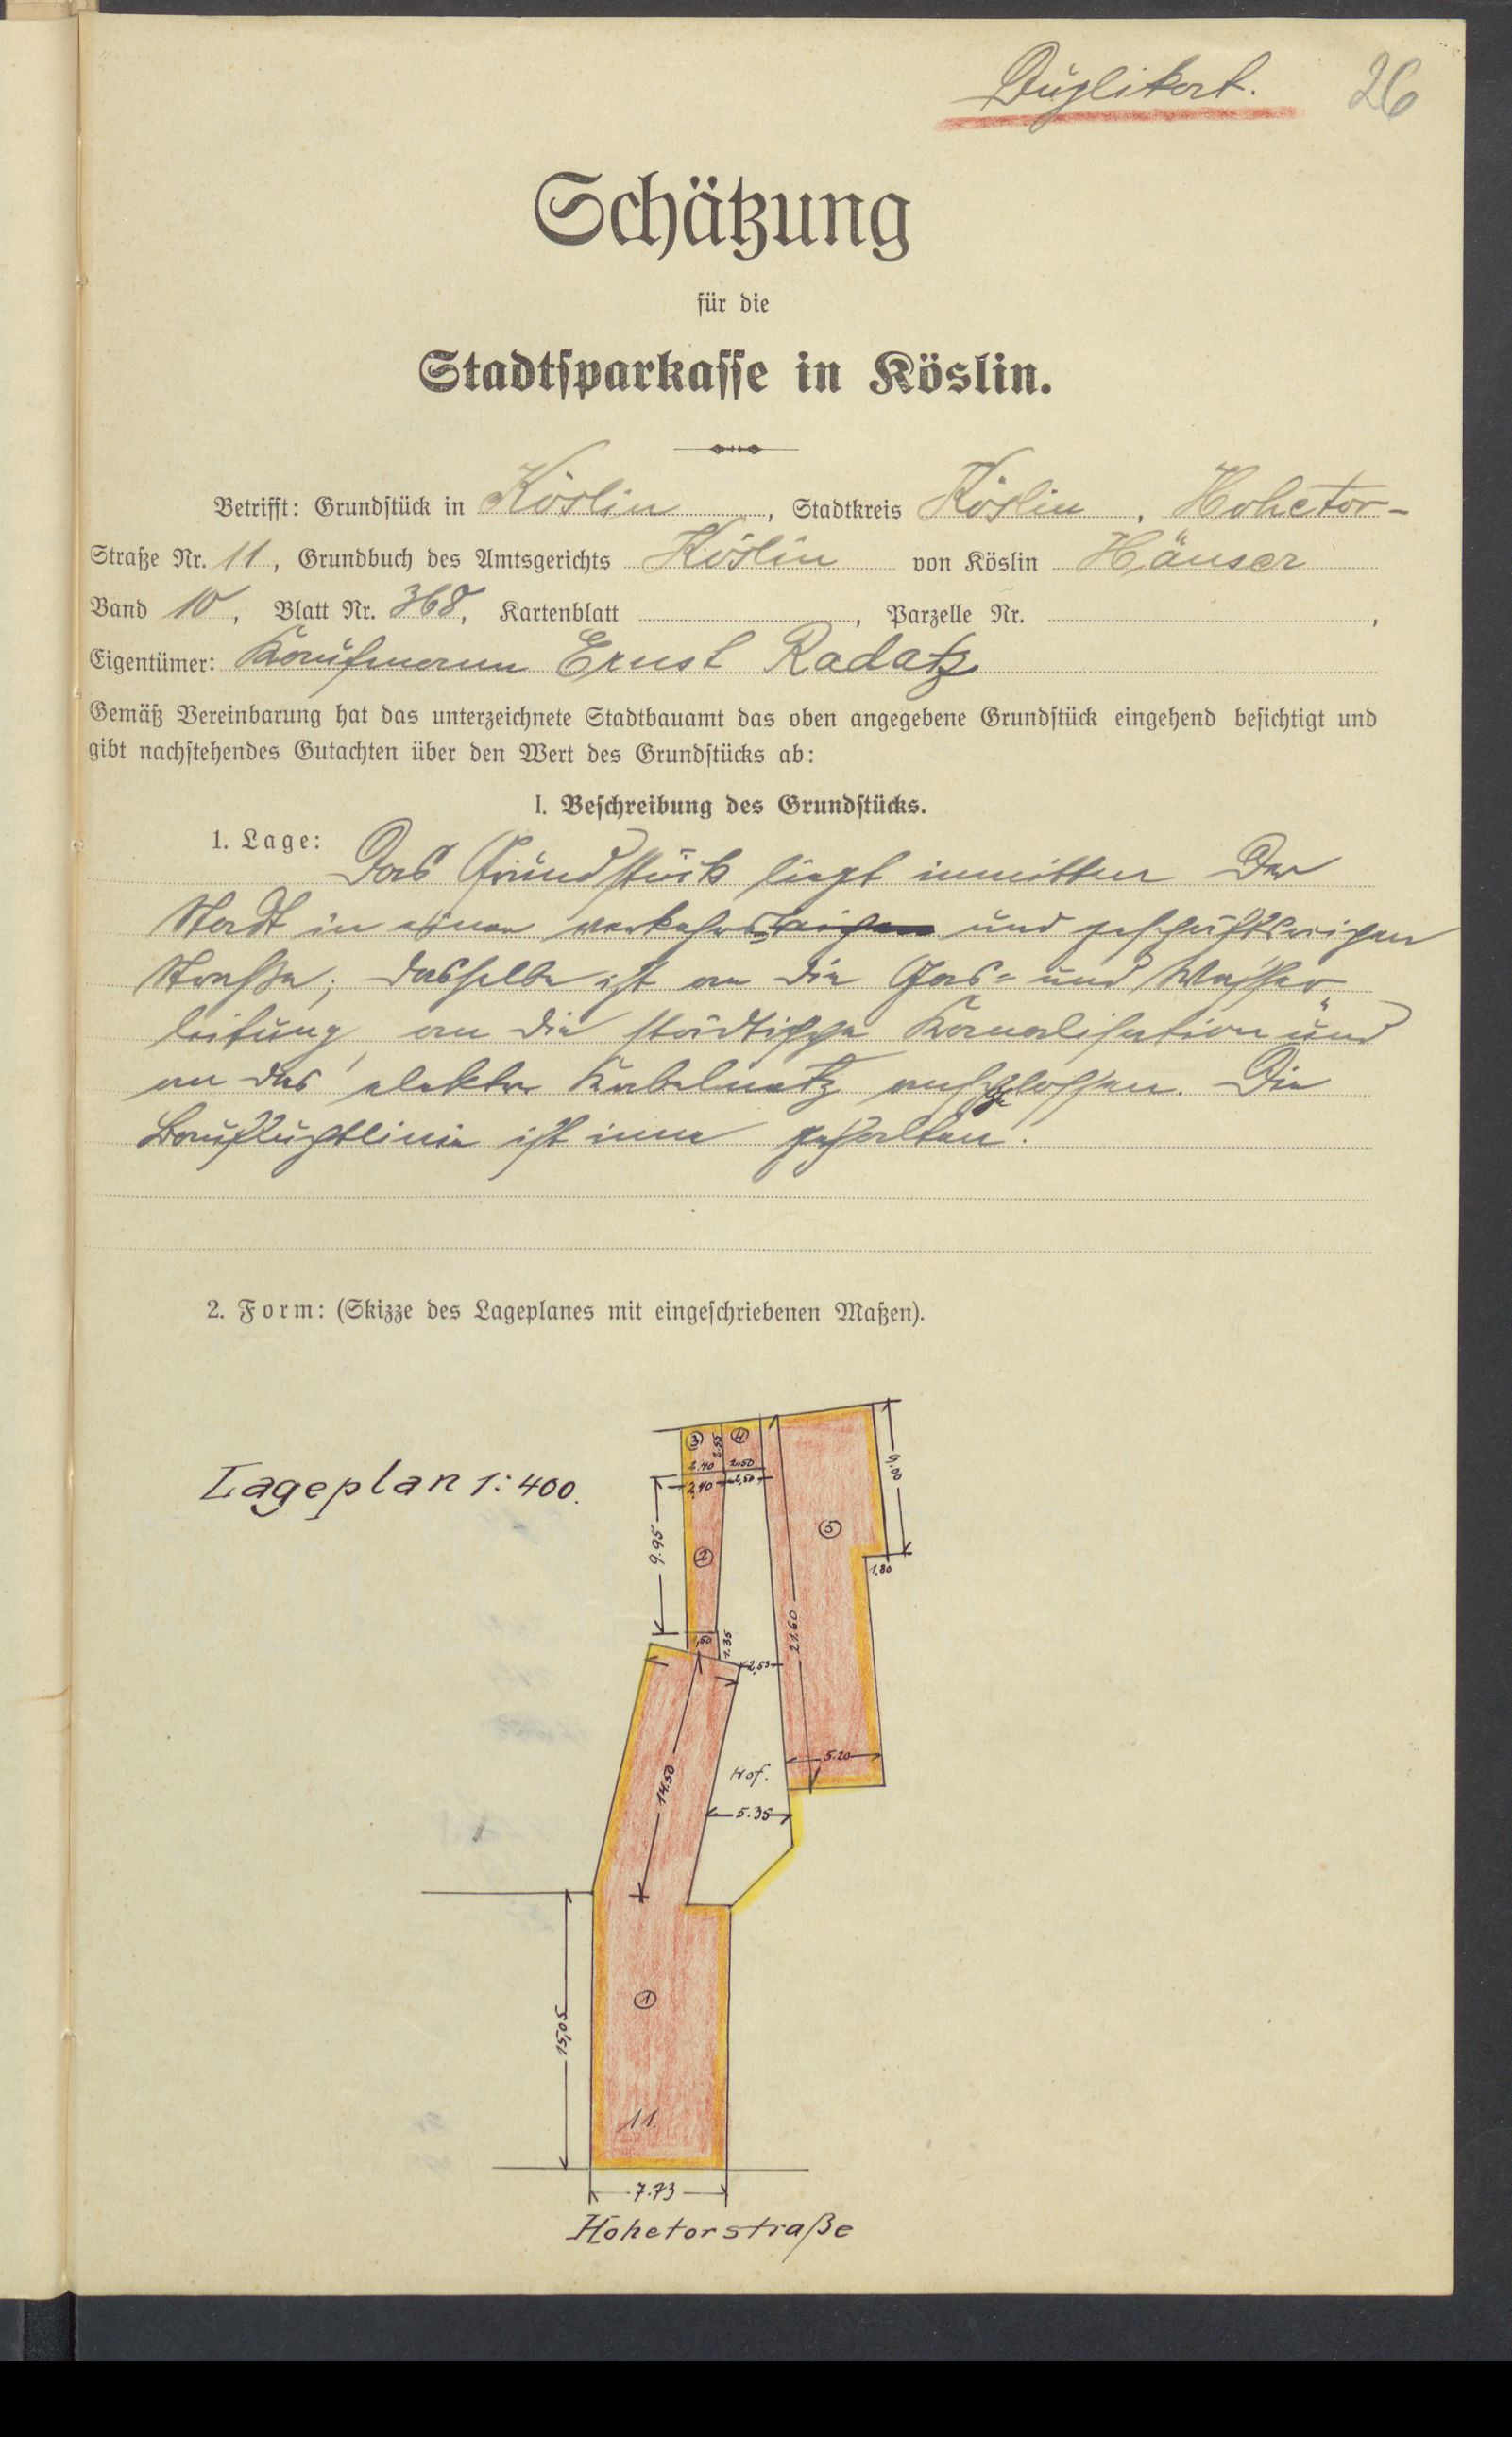 Duplikat. 26
Schätzung
für die
Stadtsparkasse in Köslin.
Betrifft: Grundstück in Köslin, Stadtkreis Köslin, Hohetor-
Straße Nr. 11, Grundbuch des Amtsgerichts Köslin von Köslin Häuser
Band 10, Blatt Nr. 368, Kartenblatt , Parzelle Nr. ,
Eigentümer: Kaufmann Ernst Radatz
Gemäß Vereinbarung hat das unterzeichnete Stadtbauamt das oben angegebene Grundstück eingehend besichtigt und
gibt nachstehendes Gutachten über den Wert des Grundstücks ab:
I. Beschreibung des Grundstücks.
1. Lage: Das Grundstück liegt inmitten der
Stadt in einer verkehrs-reichen und geschäftsreichen
Straße; dasselbe ist an die Gas- und Wasser-
leitung, an die städtische Kanalisation und
an das elektr Kabelnetz angeschlossen. Die
Baufluchtlinie ist inne gehalten.
2. Form: (Skizze des Lageplanes mit eingeschriebenen Maßen).
Lageplan 1:400.
3 2.55 4
2.40 2.50
2.40 2.50
9.00
9.95
2
5
1.80
1.50 1.35
21.60
2.53
14.50
5.20
Hof.
5.35
15,05
1
11.
7.73
Hohetorstraße